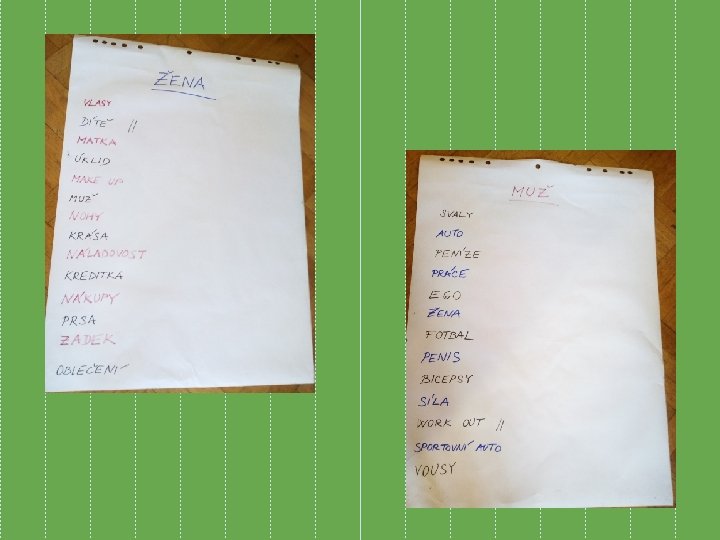 ŽENA
VLASY
DÍTĚ //
MATKA
ÚKLID
MAKE UP
MUŽ
NOHY
KRÁSA
NÁLADOVOST
KREDITKA
NÁKUPY
PRSA
ZADEK
OBLEČENÍ
MUŽ
SVALY
AUTO
PENÍZE
PRÁCE
EGO
ŽENA
FOTBAL
PENIS
BICEPSY
SÍLA
WORK OUT //
SPORTOVNÍ AUTO
VOUSY